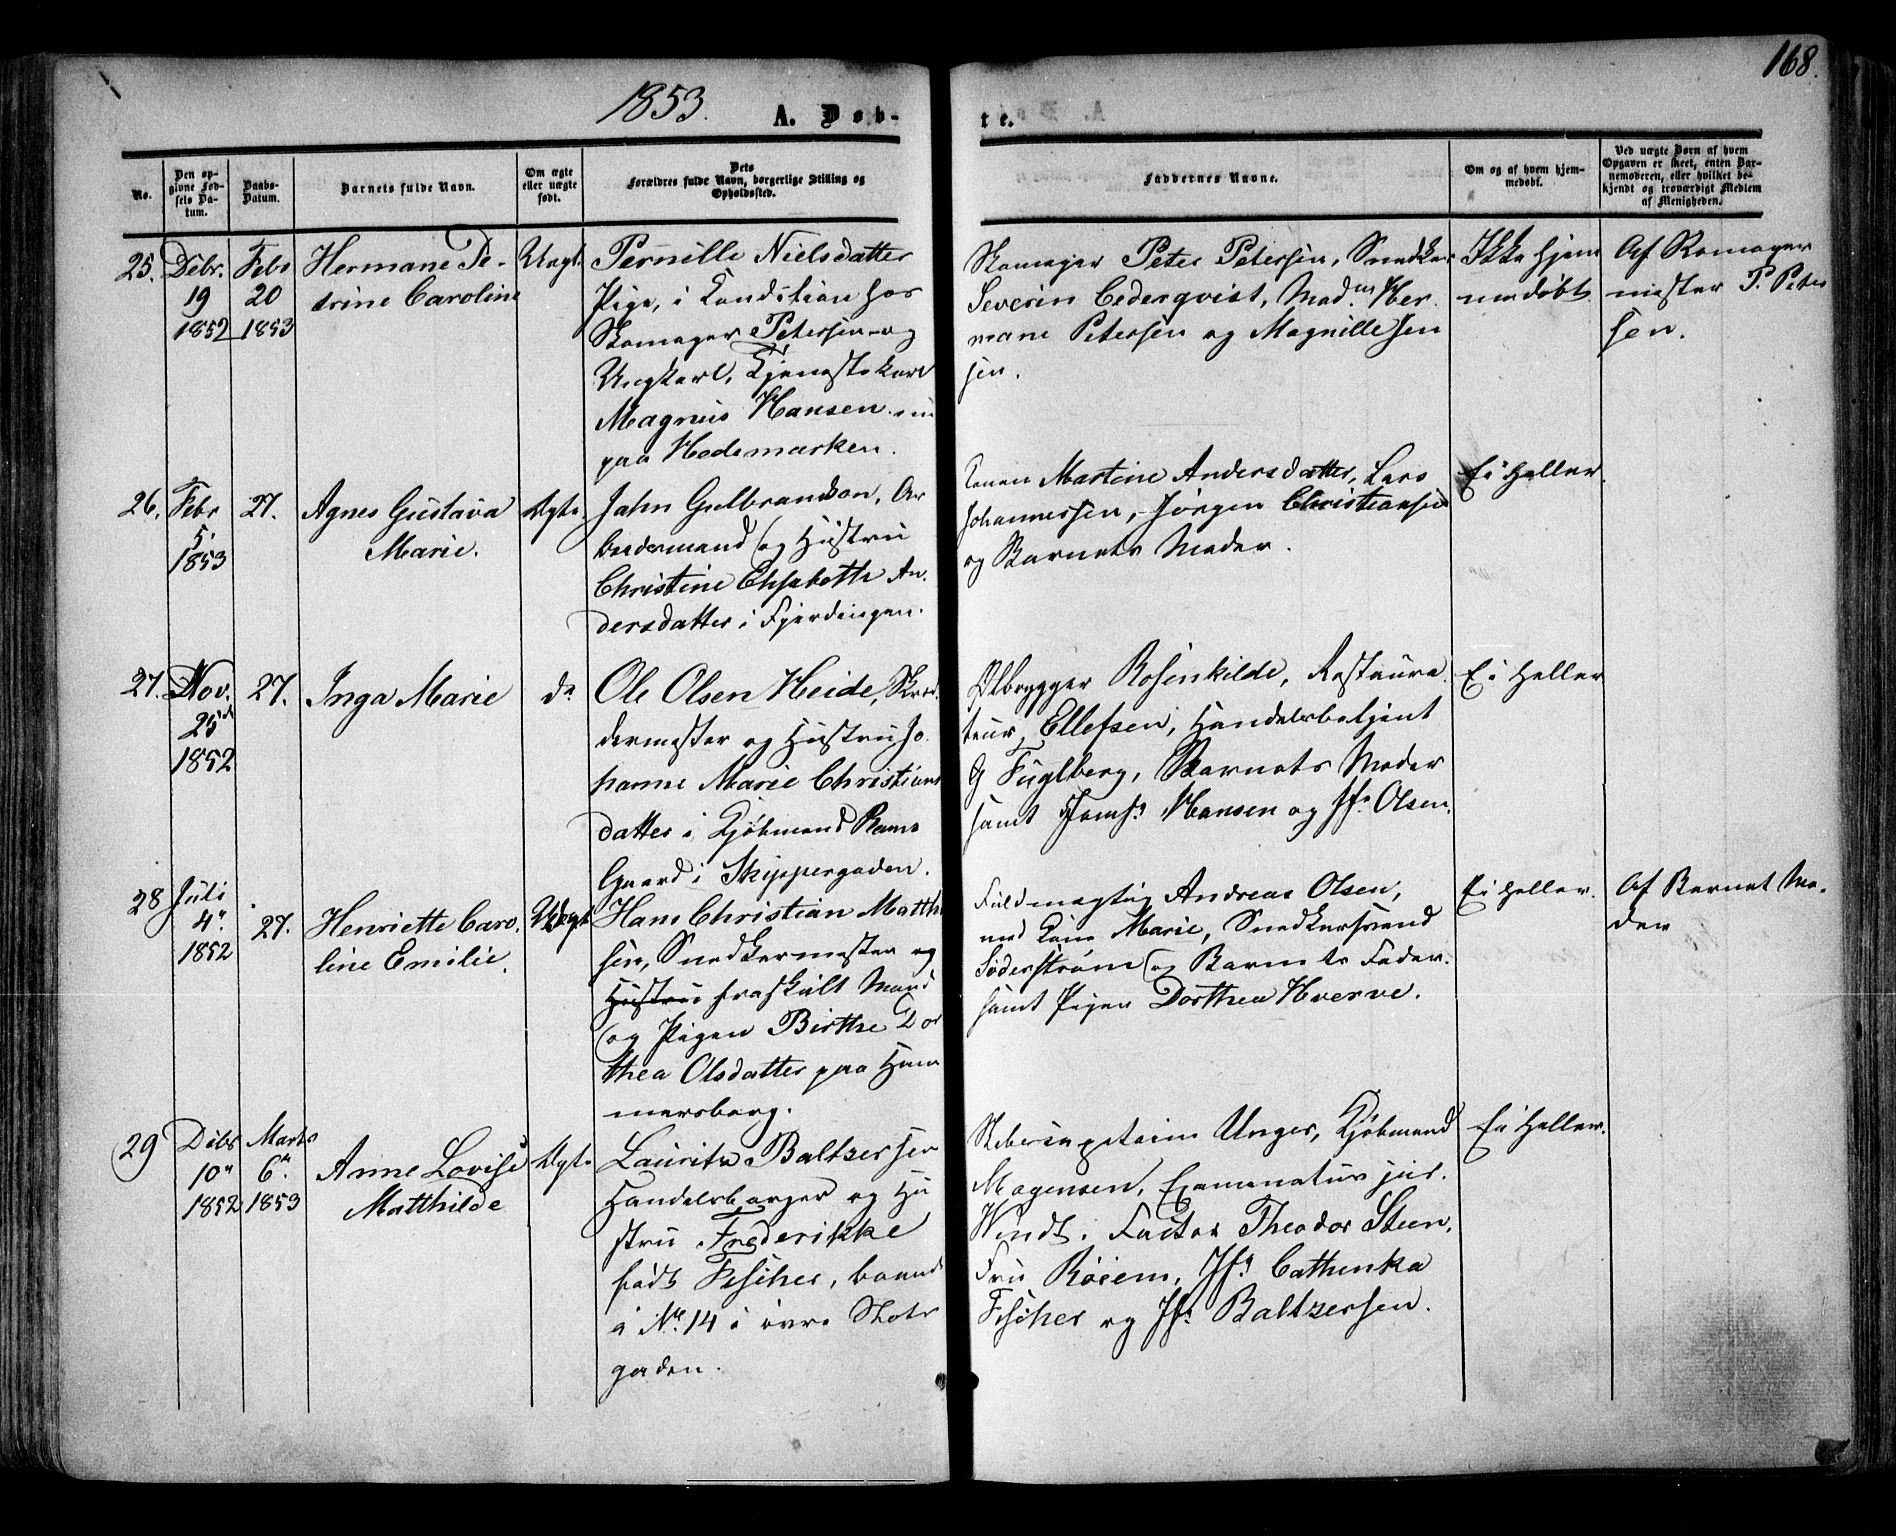 168.
1853.
A. Døb-
te.
No.
Den op-
givne Fød-
sels Da-
tum.
Daabs-
Datum.
Barnets fulde Navn.
Om ægte
eller uægte
født.
Dets
Forældres fulde Navn, borgerlige Stilling og
Opholdssted.
Faddernes Navne.
Om og af hvem hjem-
medøbt.
Ved uægte Børn af hvem
Opgaven er skeet, enten Bar-
nemoderen, eller hvilket be-
kjendt og troværdigt Medlem
af Menigheden.
25.
Dcbr.
19
1852
Febr
20
1853
Hermane Pe-
trine Caroline
Uægt.
Pernille Nielsdatter
Pige, i Condition hos
Skomager Petersen og
Ungkarl, Tjenestekarl
Magnus Hansen nu
paa Hedemarken.
Skomager Peter Petersen, Snedker
Severin Cederqvist, Mad.m Her-
mane Petersen og Magnille Jen
sen.
Ikke hjem
medøbt
Af Skomager
mester P. Peter
sen.
26.
Febr
5.
1853
27.
Agnes Gustava
Marie.
Ægte
John Gulbrandson, Ar
beidermand og Hustru
Christine Elisabeth An-
dersdatter i Fjerdingen.
Konen Martine Andersdatter, Lars
Johannessen, Jørgen Christiansen
og Barnets Moder.
Ei heller.
27.
Nov.
25
1852
27.
Inga Marie
do
Ole Olsen Heide, Skræd
dermester og Hustru Jo-
hanne Marie Christians
datter i Kjøbmand Rams
Gaard i Skippergaden.
Ølbrygger Rosenkilde, Restaura-
teur Ellefsen, Handelsbetjent
G Fuglberg, Barnets Moder
samt Jomf. Hansen og Jfr Olsen.
Ei heller
28
Juli
4"
1852
27.
Henriette Caro-
line Emilie.
Uægt
Hans Christian Matth
sen, Snedkermester og
Hustru fraskilt Mand
og Pigen Birthe Dor
thea Olsdatter paa Ham
mersborg.
Fuldmægtig Andreas Olsen,
med Kone Marie, Snedkersvend
Søderstrøm og Barnets Fader.
samt Pigen Dorthea Hverve.
Ei heller.
Af Barnet Mo-
der
29
Dcbr
10"
1852
Marts
6"
1853
Anne Lovise
Matthilde
Ægte
Lauritz Baltzersen
Handelsborger og Hu
stru Frederikke
født Fischer, boende
i No 14 i øvre Slots
gaden.
Unger, Kjøbmand
Mogensen, Examinatus jur.
Windt, Factor Theodor Steen,
Fru Roiem, Jfr Cathinka
Fischer og Jfr Baltzersen.
Ei heller.